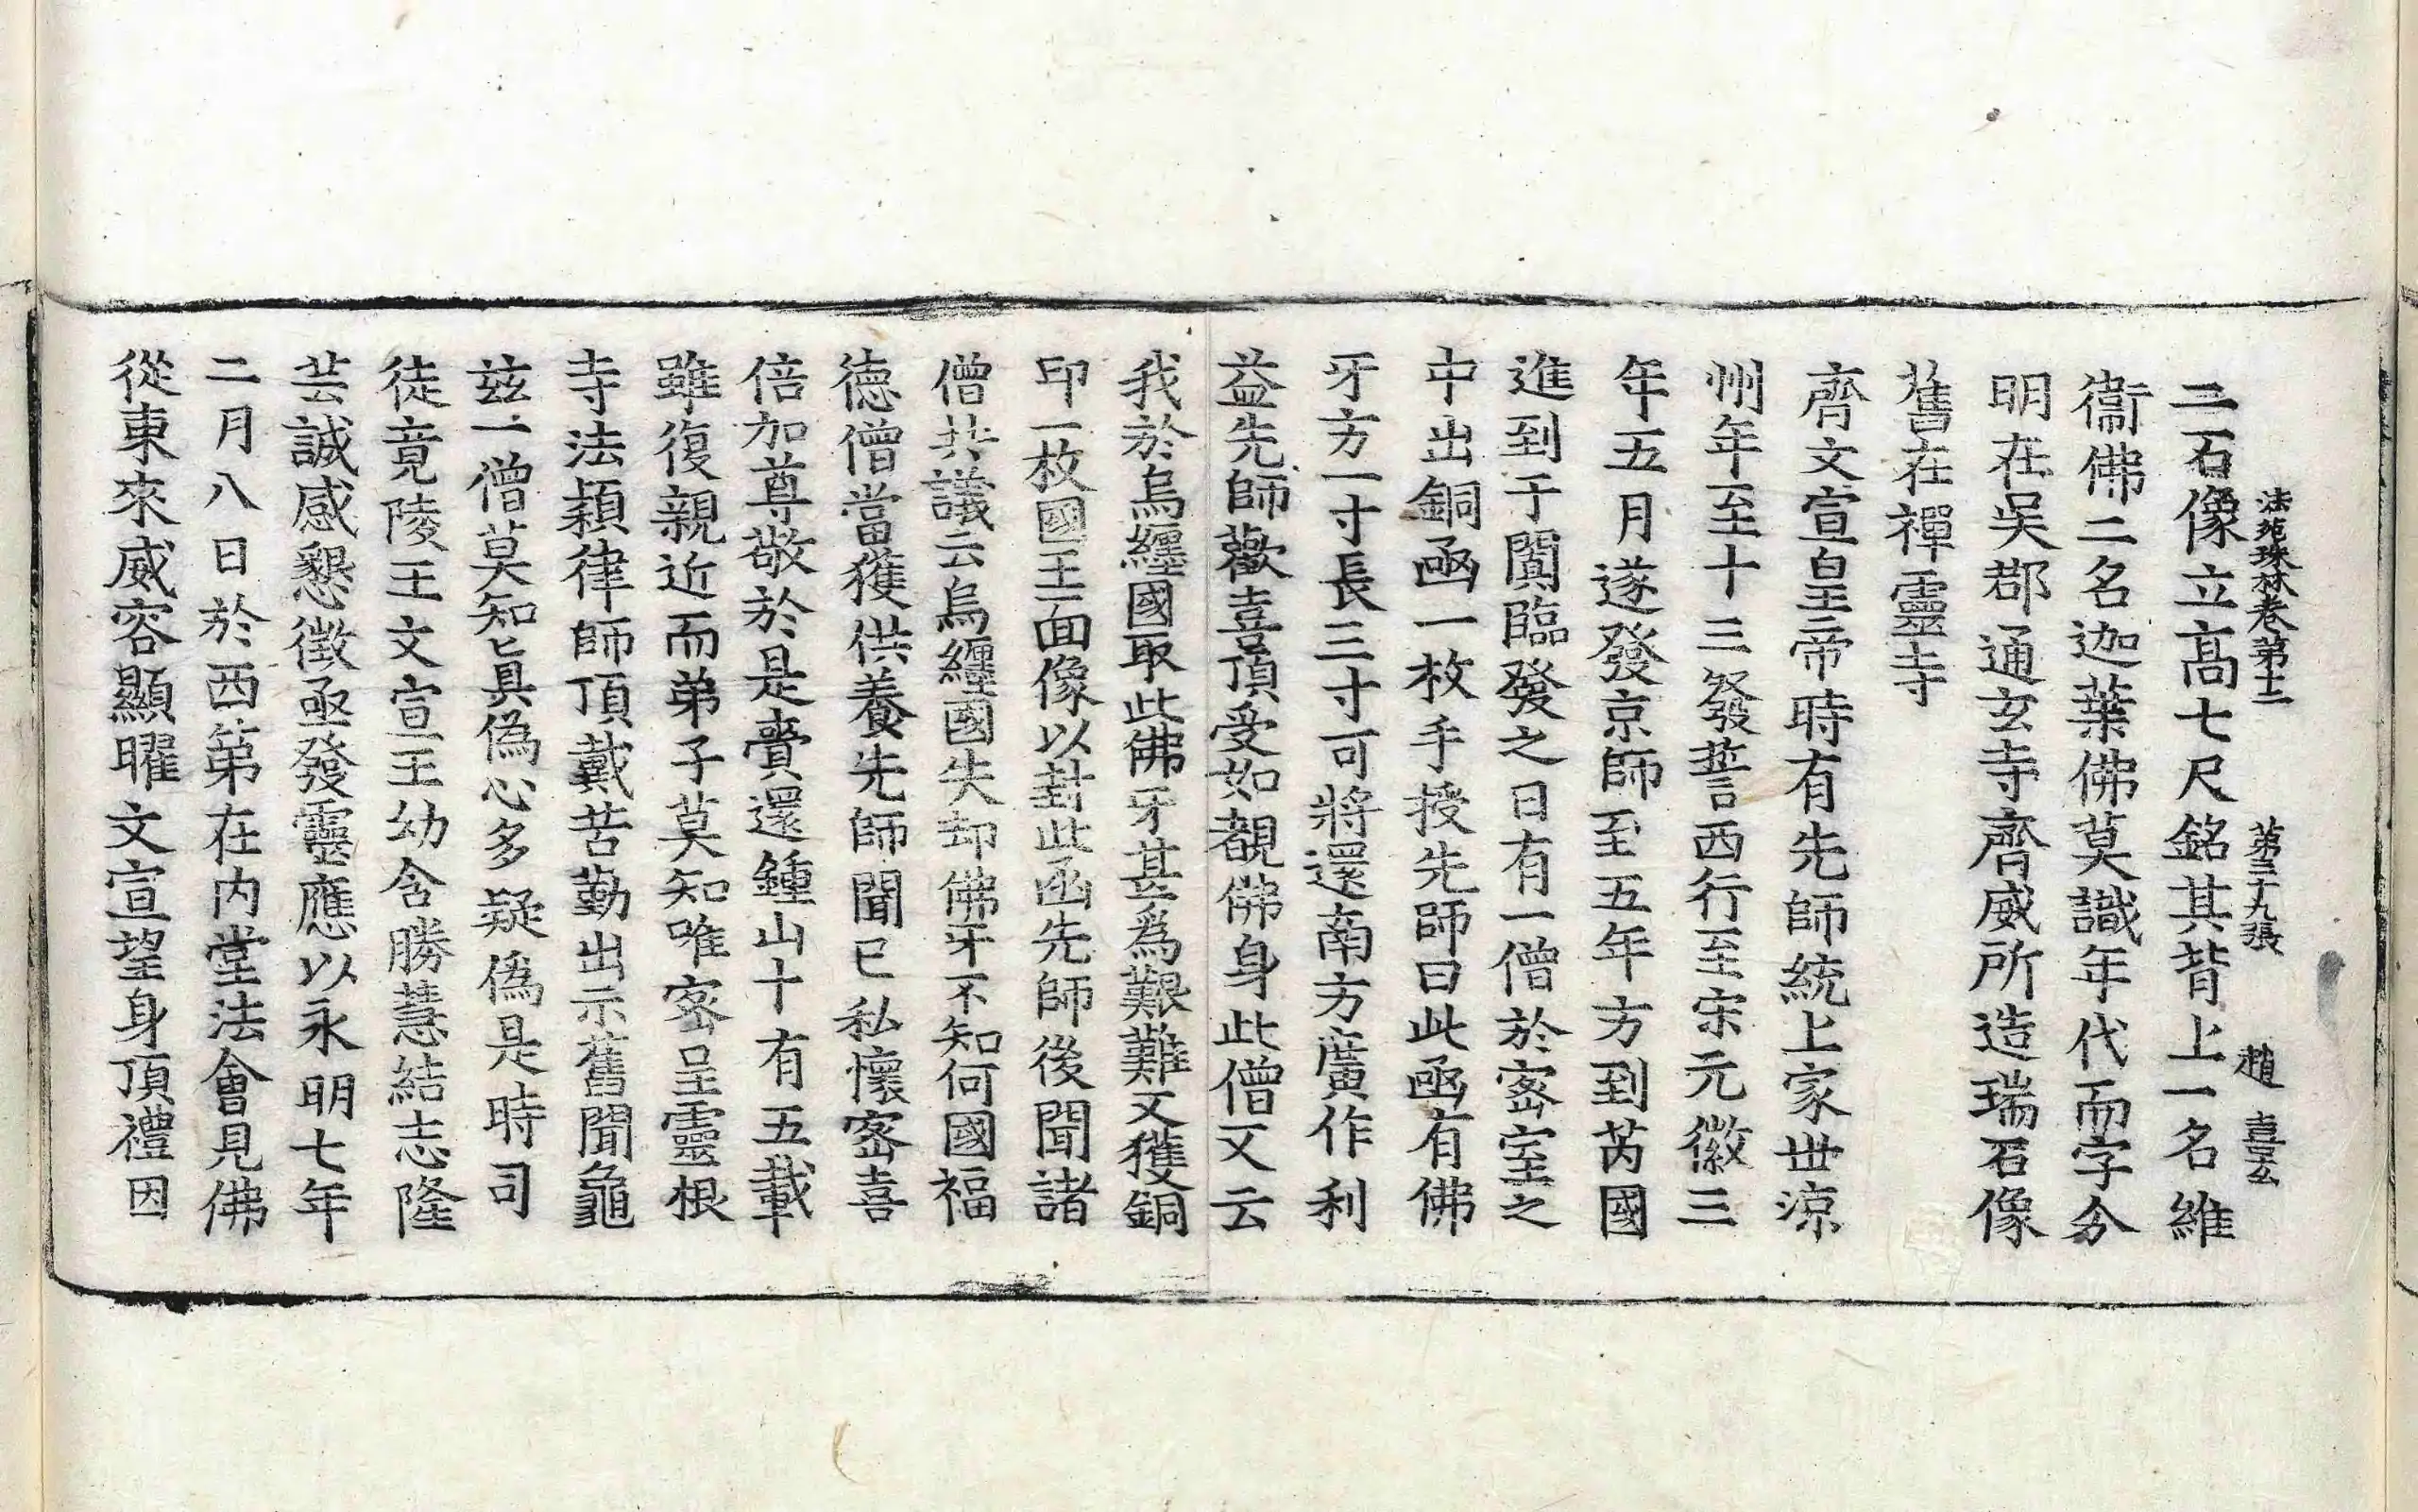 法苑珠林卷第十二 第三十九張 趙 喜玄
二石像立高七尺銘其背上一名維
衞佛二名迦葉佛莫識年代而字分
明在吳郡通玄寺齊威所造瑞石像
舊在禪靈寺
齊文宣皇帝時有先師統上家世涼
州年至十三發誓西行至宋元徽三
年五月遂發京師至五年方到芮國
進到于闐臨發之日有一僧於密室之
中出銅函一枚手授先師曰此函有佛
牙方一寸長三寸可將還南方廣作利
益先師歡喜頂受如覩佛身此僧又云
我於烏纏國取此佛牙甚爲艱難又獲銅
印一枚國王面像以封此函先師後聞諸
僧共議云烏纏國失却佛牙不知何國福
德僧當獲供養先師聞已私懷密喜
倍加尊敬於是賷還鍾山十有五載
雖復親近而弟子莫知唯密呈靈根
寺法穎律師頂戴苦勤出示舊聞龜
茲一僧莫知眞僞心多疑僞是時司
徒竟陵王文宣王幼含勝慧結志隆
芸誠感懇徵亟發靈應以永明七年
二月八日於西第在內堂法會見佛
從東來威容顯曜文宣望身頂禮因